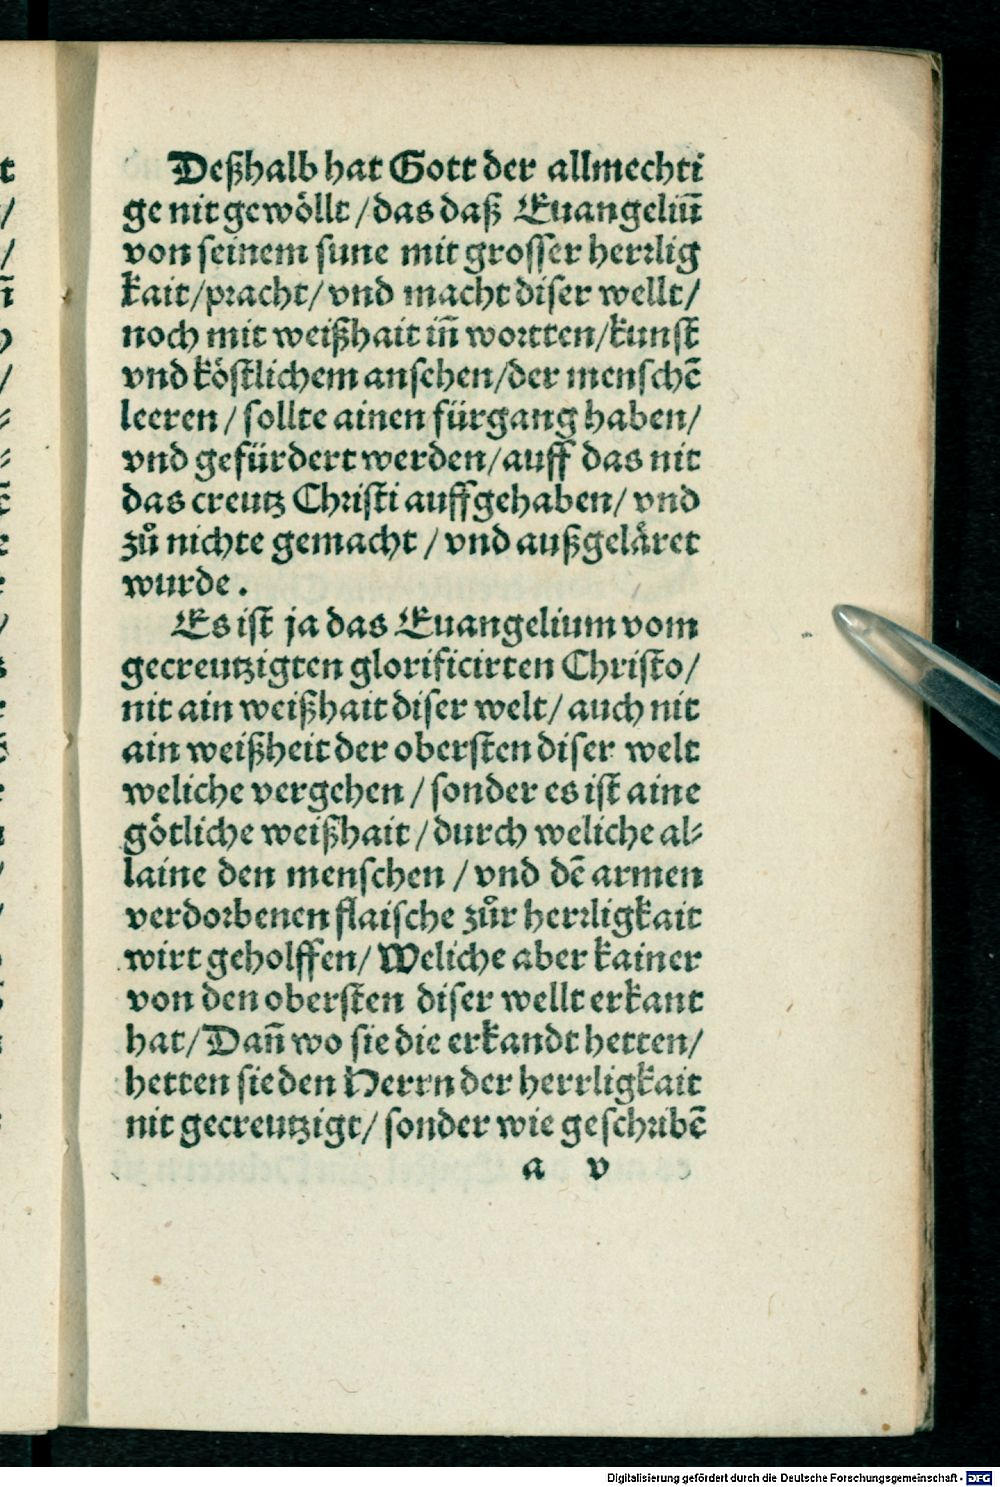 Deßhalb hat Gott der allmechti
ge nit gewöllt / das daß Euangeliū
von seinem sune mit grosser herrlig
kait / pracht / vnd macht diser wellt /
noch mit weißhait iñ wortten / kunst
vnd köstlichem ansehen / der menschē
leeren / sollte ainen fürgang haben /
vnd gefürdert werden / auff das nit
das creutz Christi auffgehaben / vnd
zů nichte gemacht / vnd außgeläret
wurde .
Es ist ja das Euangelium vom
gecreutzigten glorificirten Christo /
nit ain weißhait diser welt / auch nit
ain weißheit der obersten diser welt
weliche vergehen / sonder es ist aine
götliche weißhait / durch weliche al⸗
laine den menschen / vnd dē armen
verdorbenen flaische zůr herrligkait
wirt geholffen / Weliche aber kainer
von den obersten diser wellt erkant
hat / Dañ wo sie die erkandt hetten /
hetten sie den Herrn der herrligkait
nit gecreutzigt / sonder wie geschribē
a v
Digitalisierung gefördert durch die Deutsche Forschungsgemeinschaft - DFG